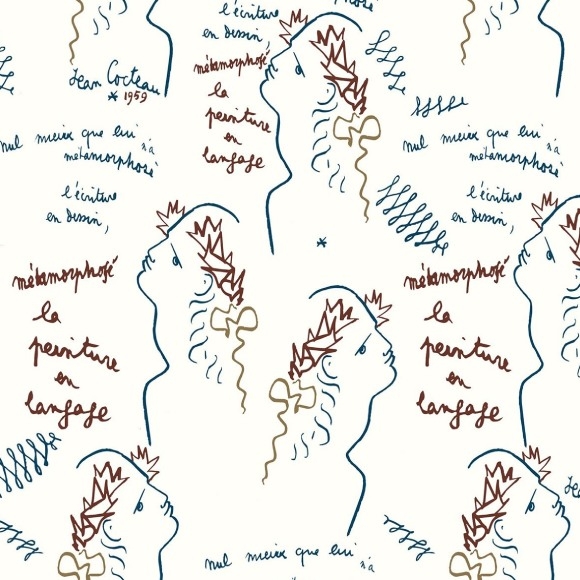 l'écriture
en dessin,
métamorphosé
la
peinture
en
langage
Jean Cocteau
* 1959
nul mieux que lui
n'a
métamorphosé
l'écriture
en dessin,
nul mieux que lui
n'a
métamorphosé
l'écriture
en dessin,
*
métamorphosé
la
peinture
en
langage
métamorphosé
la
peinture
en
langage
nul mieux que lui
n'a